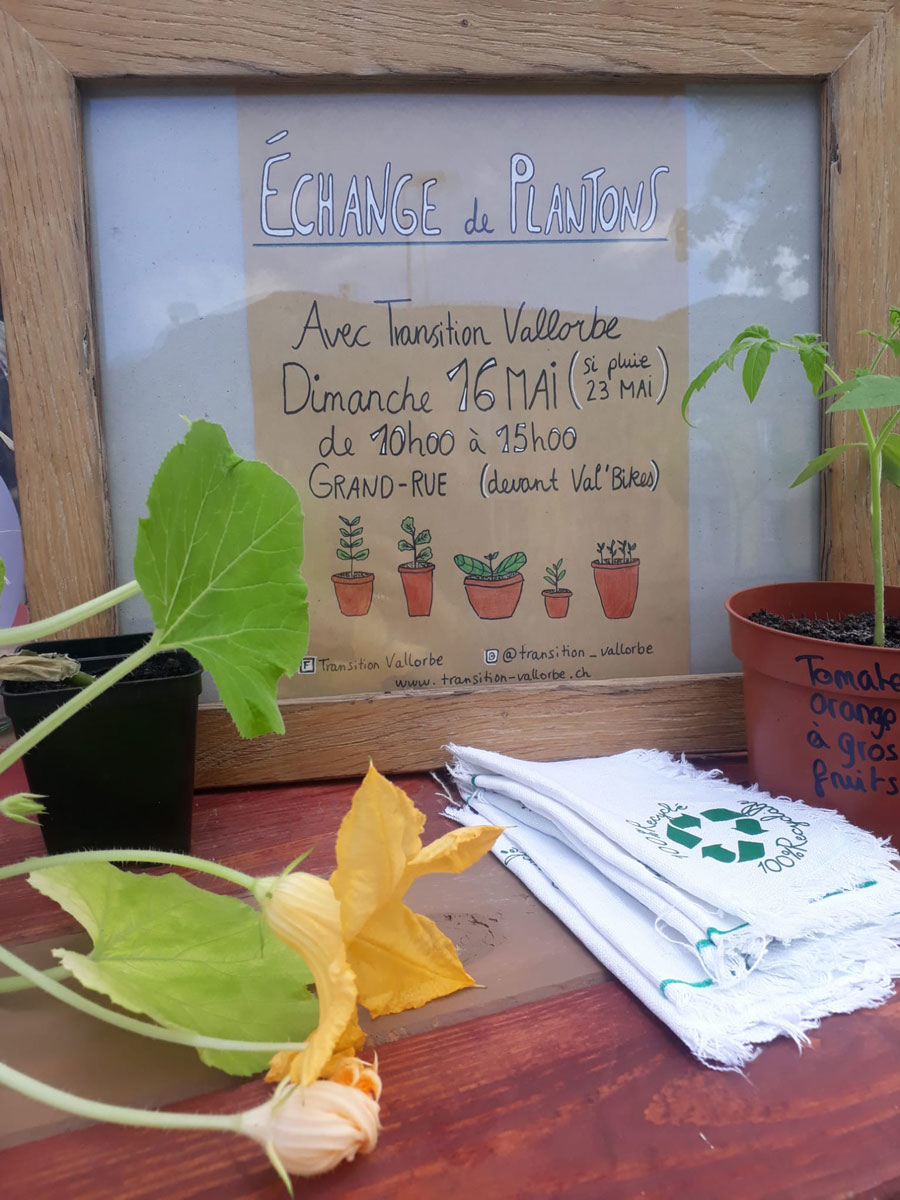 ÉCHANGE de PLANTONS
Avec Transition Vallorbe
Dimanche 16 MAI (si pluie
23 MAI)
de 10h00 à 15h00
GRAND-RUE (devant Val'Bikes)
Transition Vallorbe
@transition_vallorbe
www.transition-vallorbe.ch
Tomate
orange
à gros
fruits
100% Recyclable